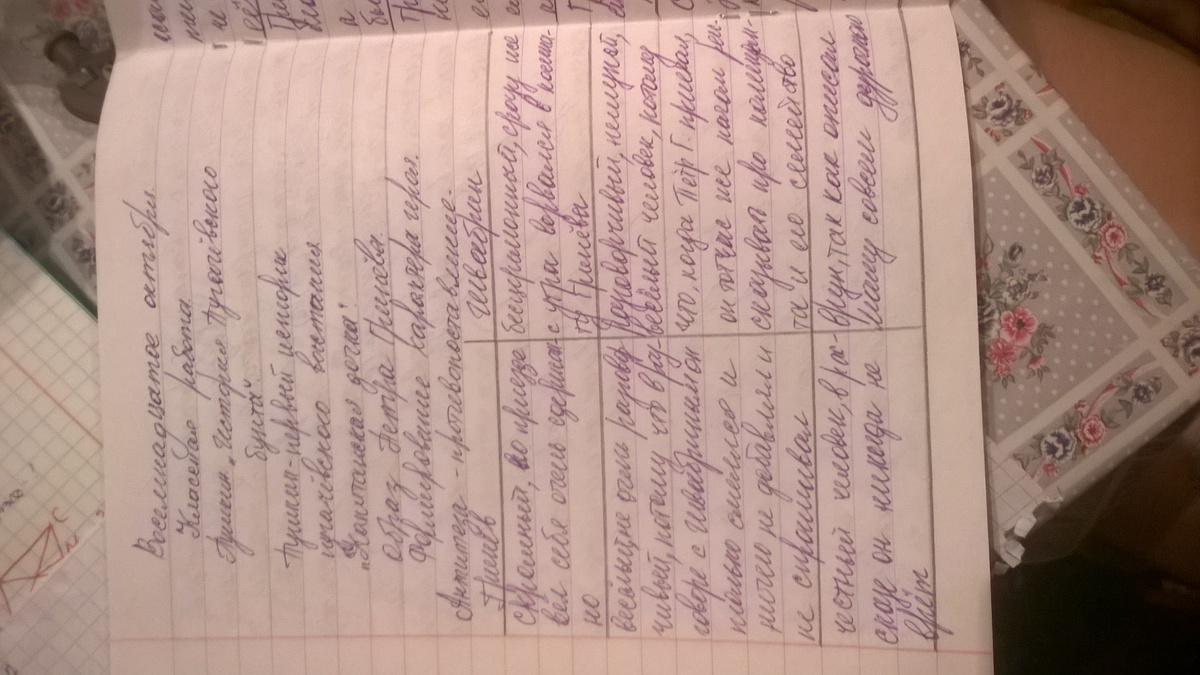 Восемнадцатое октября.
Класная работа
Пушкин „История Пугачёвского
бунта"
Пушкин-первый историк
пугачёвского восстания
"Капитанская дочка"
образ Петра Гринёва.
Формирование характера героя.
Антитеза - противопоставление.
Гринёв Швабрин
скромный, по приезде
вёл себя очень сдержан-
но
бесцеремонный, сразу же
с утра ворвался в комна-
ту Гринёва
весёлый, не очень разговор
чивый, потому что в раз
говоре с Швабриным он
только смеялся и
ничего не добавлял и
не спрашивал
разговорчивый, неглупый,
весёлый человек, потому
что, когда Пётр Г. приехал,
он тотчас же начал
сплетничать про комендан-
та и его семейство
честный человек, в рас-
сказе он никогда не
врёт
лгун, так как описал
Машу совсем дурочкой